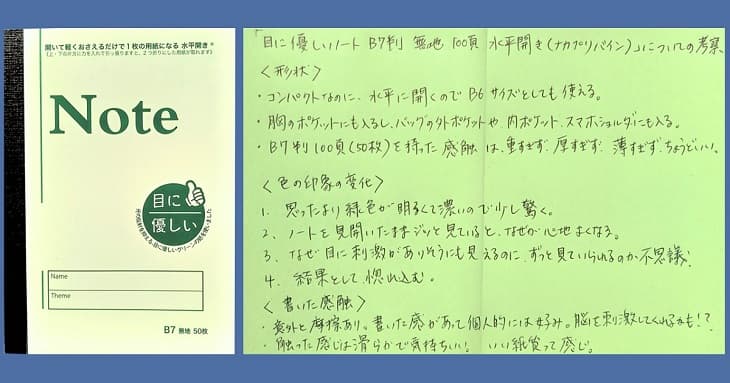 開いて軽くおさえるだけで1枚の用紙になる 水平開き®
Note
目に
優しい
光の反射を抑える、目に優しいグリーンの紙を使いました
Name
Theme
B7 無地 50枚
「目に優しいノート B7判 無地 100頁 水平開き(ナカプリバイン)」についての考察
<形状>
・コンパクトなのに、水平に開くのでB6サイズとしても使える。
・胸のポケットにも入るし、バッグの外ポケットや、内ポケット、スマホショルダにも入る。
・B7判100頁(50枚)を持った感触は、重すぎず、厚すぎず、薄すぎず、ちょうどいい。
<色の印象の変化>
1. 思ったより緑色が明るくて濃いので少し驚く。
2. ノートを見開いたままジッと見ていると、なぜか心地よくなる。
3. なぜ目に刺激がありそうにも見えるのに、ずっと見ていられるのか不思議;
4. 結果として、惚れ込む。
<書いた感触>
・意外と摩擦あり。書いた感があって個人的には好み。脳を刺激してくれるかも!?
・触った感じは滑らかで気持ちいい。いい紙質って感じ。